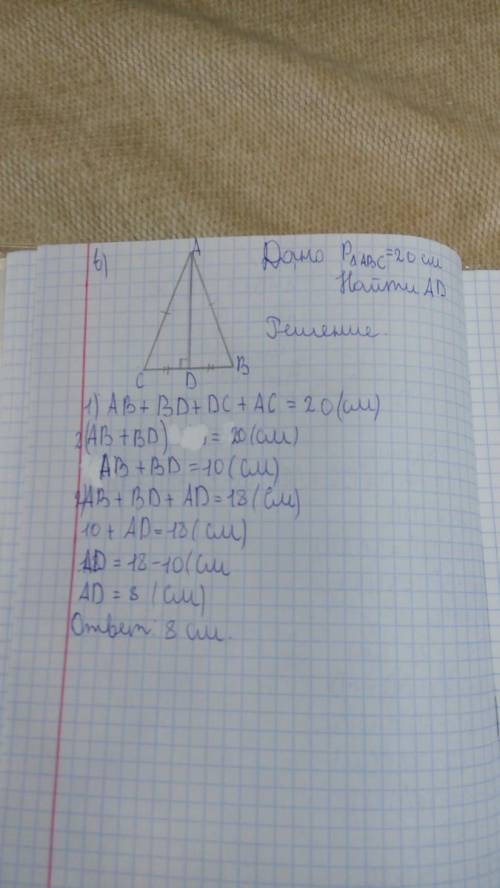 в)
Дано P△ABC=20 см
Найти AD
Решение.
A
C D B
1) AB + BD + DC + AC = 20 (см)
2(AB + BD) = 20 (см)
AB + BD = 10 (см)
2) AB + BD + AD = 18 (см)
10 + AD = 18 (см)
AD = 18 - 10 (см
AD = 8 (см)
Ответ 8 см.